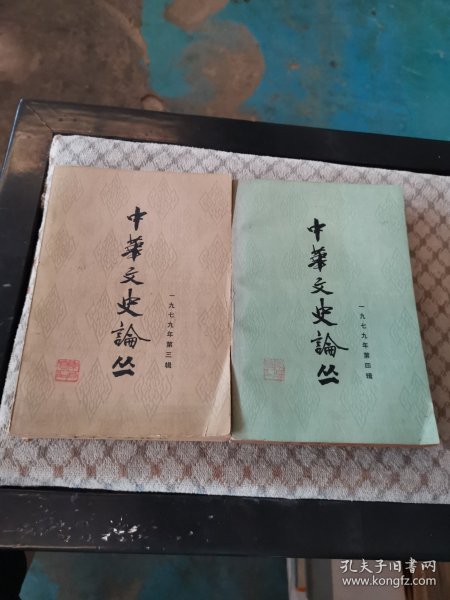 中華文史論丛
一九七九年第三辑
中華文史論丛
一九七九年第四辑
孔夫子旧书网
www.kongfz.com